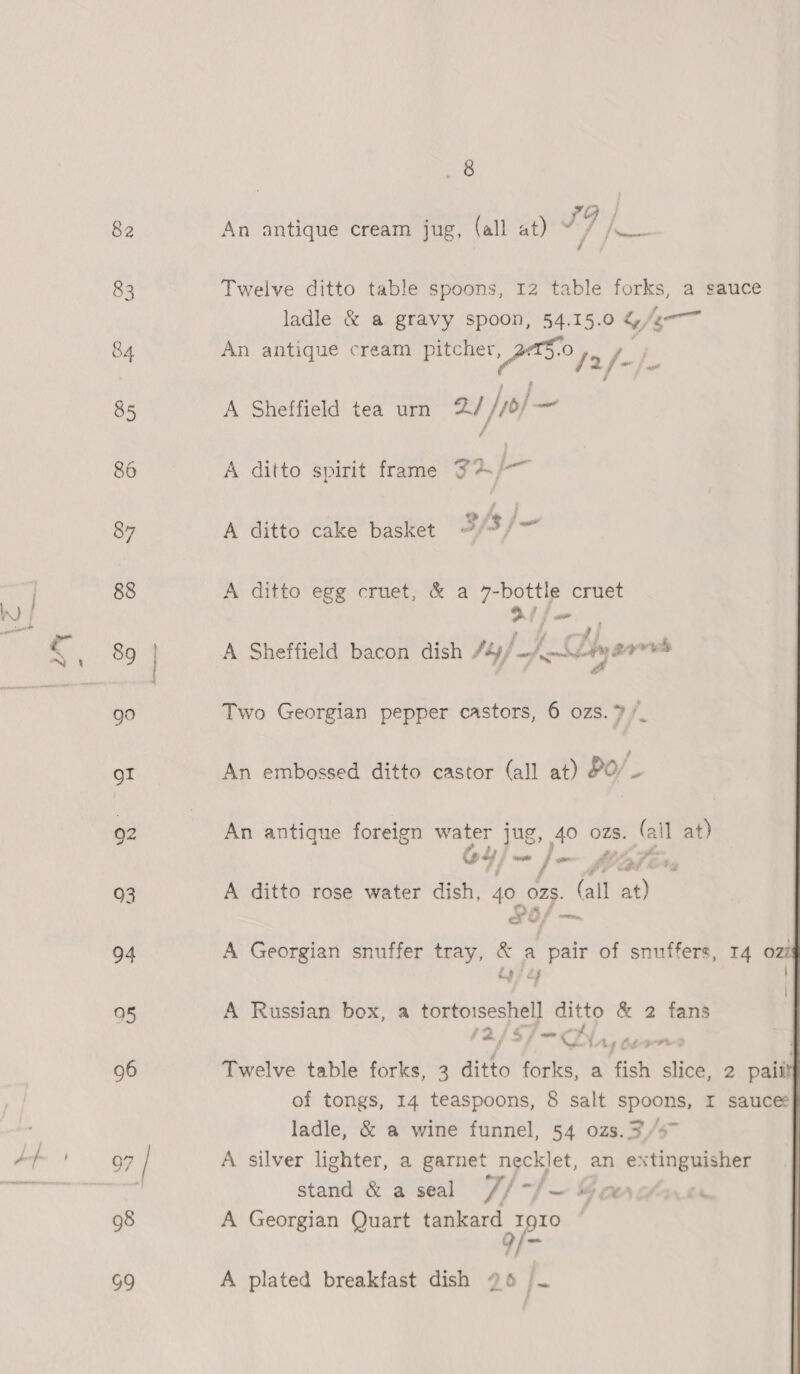 8
82 An antique cream jug, (all at) 79/
83 Twelve ditto table spoons, 12 table forks, a sauce
ladle & a gravy spoon, 54.15.0
84 An antique cream pitcher,
85 A Sheffield tea urn
86 A ditto spirit frame 32/-
87 A ditto cake basket 3/3/-
88 A ditto egg cruet, & a 7-bottle cruet
89 A Sheffield bacon dish
90 Two Georgian pepper castors, 6 ozs. 7/-
91 An embossed ditto castor (all at)
92 An antique foreign water jug, 40 ozs. (all at)
93 A ditto rose water dish, 40 ozs. (all at)
94 A Georgian snuffer tray, & a pair of snuffers, 14
95 A Russian box, a tortoiseshell ditto & 2 fans
96 Twelve table forks, 3 ditto forks, a fish slice, 2
of tongs, 14 teaspoons, 8 salt spoons, 1
ladle, & a wine funnel, 54 ozs.
97 A silver lighter, a garnet necklet, an extinguisher
stand & a seal
98 A Georgian Quart tankard 1910
9/-
99 A plated breakfast dish